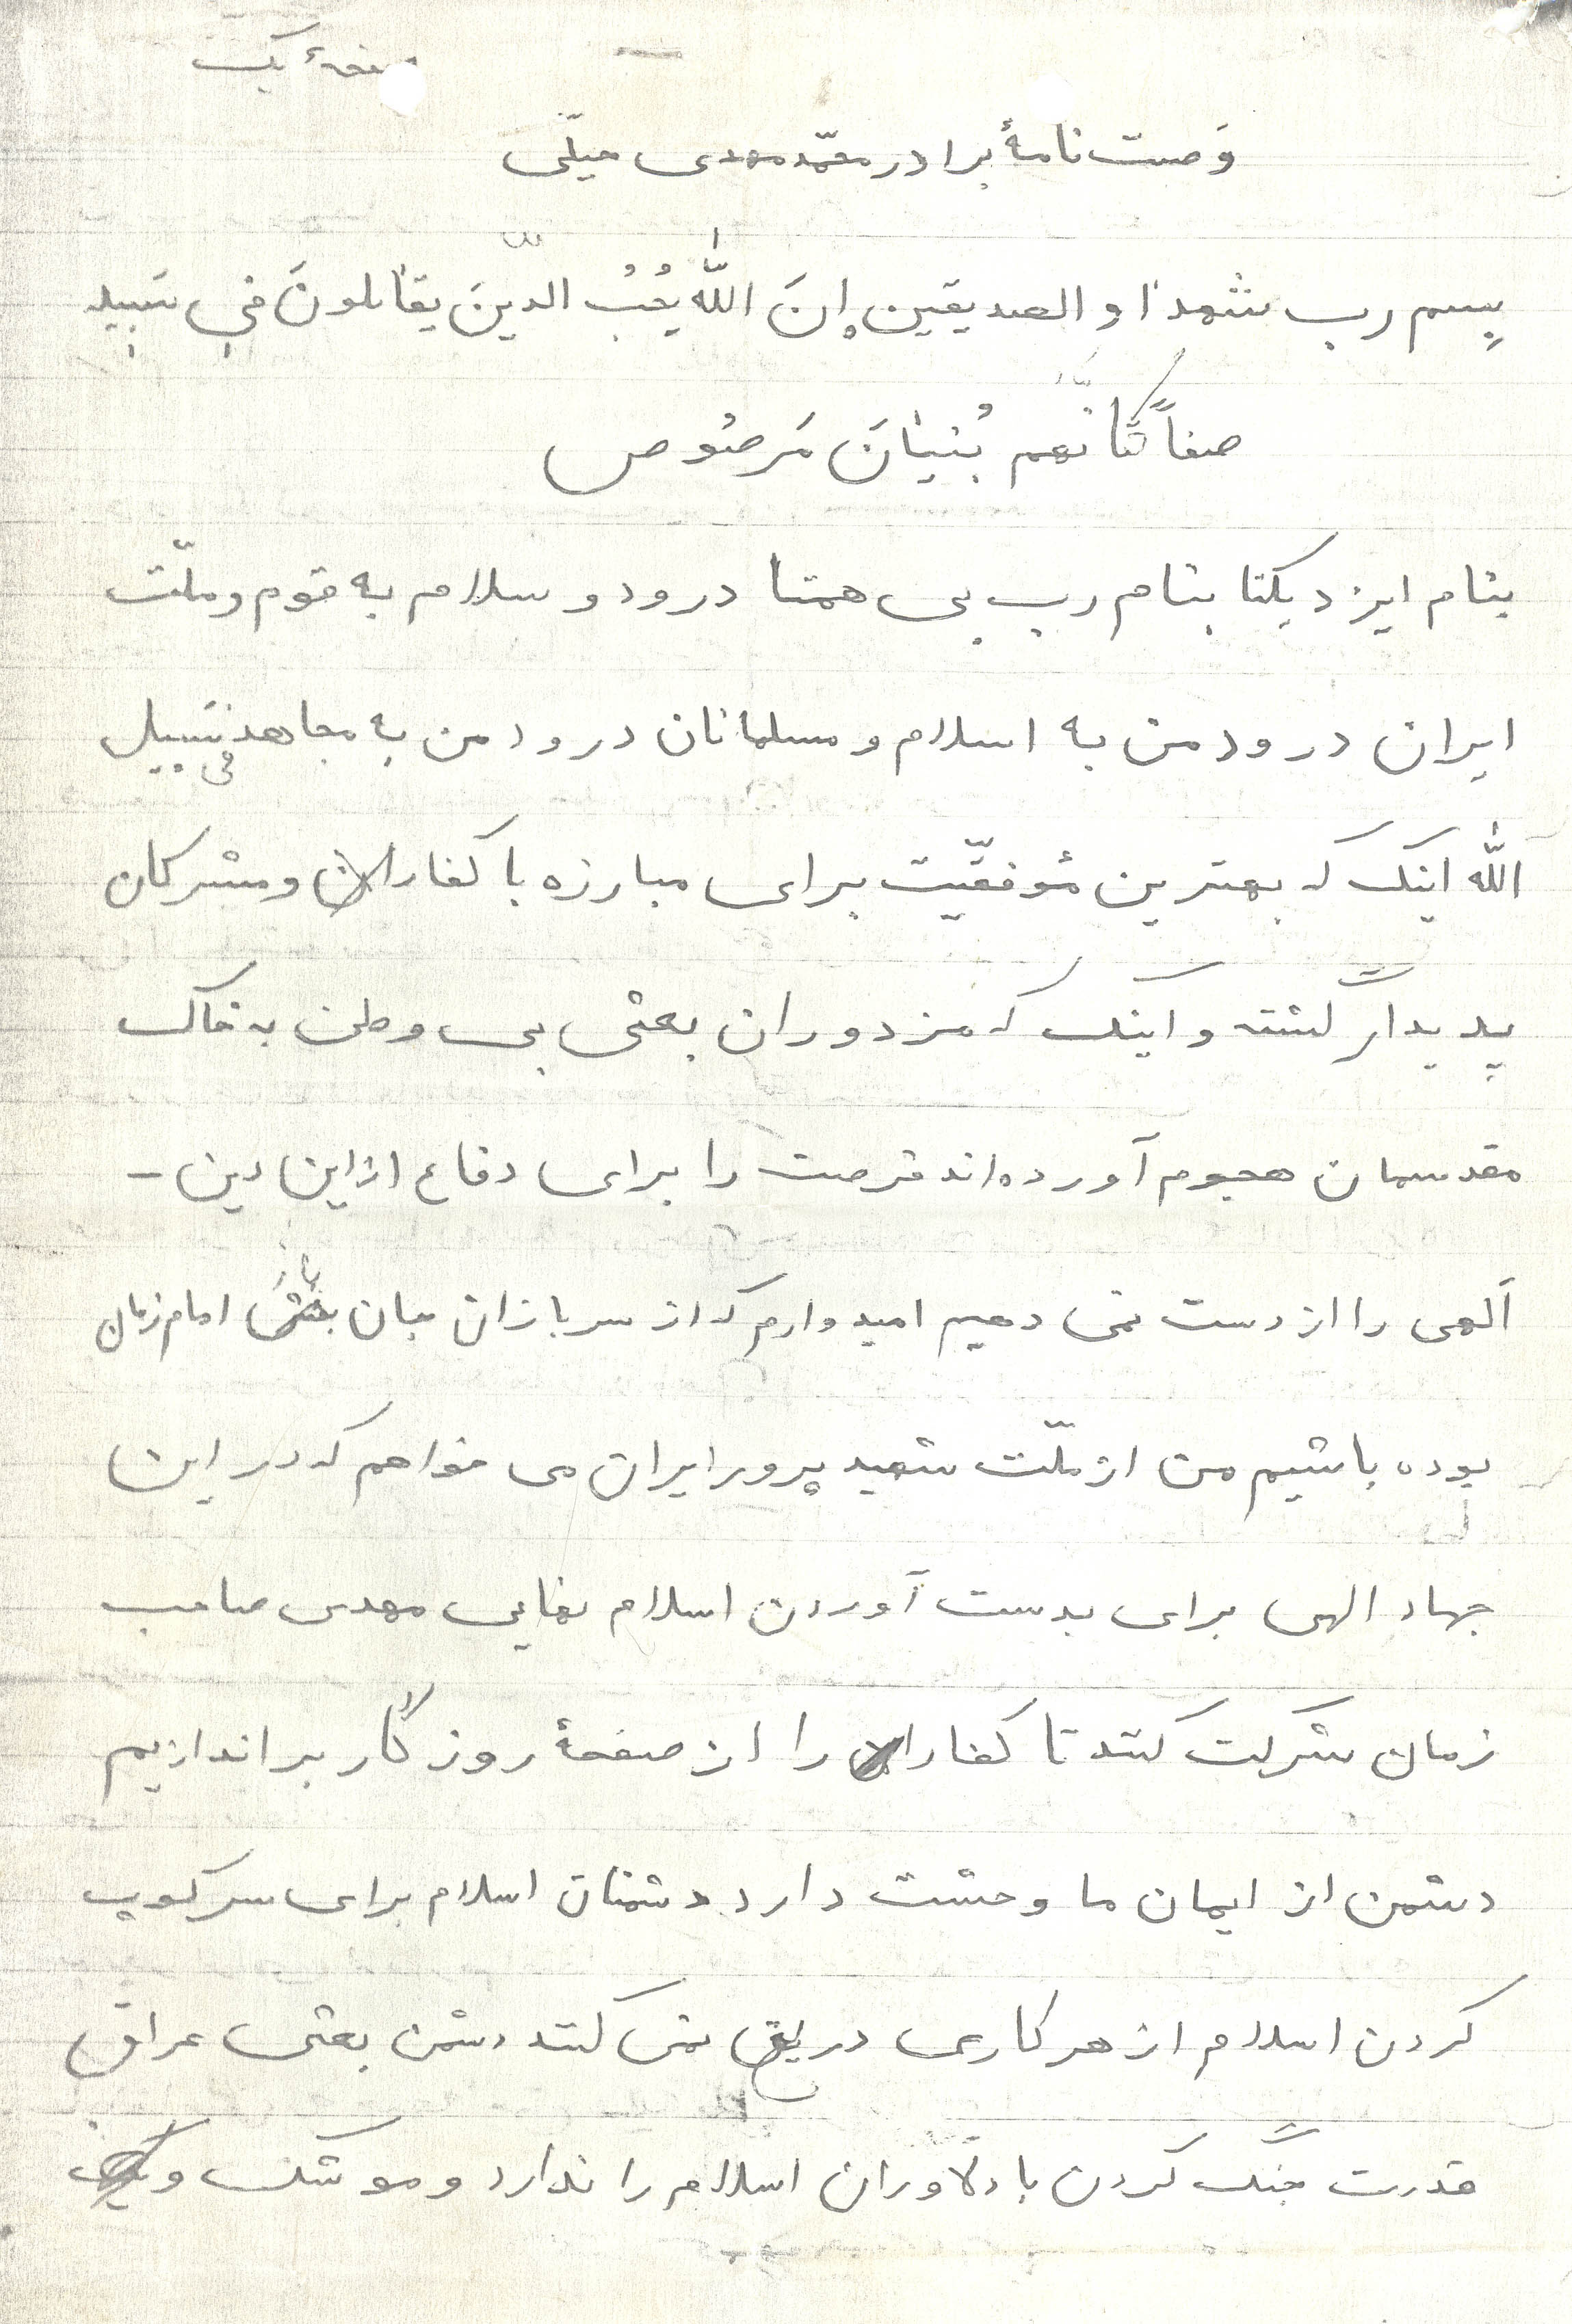 صفحهٔ یک
وَصیت نامهٔ برادر محمّد مهدی جبلّی
بِسم رب شهدا و الصدیقین إنَ اللّٰه یُحِبُ الّدینَ یقاتلونَ فی سَبیله
صفاً کَانَّهُم بُنیٰانَ مَرصُوص
بنام ایزد یکتا بنام رب بی همتا درود و سلام به قوم و ملّت
ایران درود من به اسلام و مسلمانان درود من به مجاهد فی سَبیل
اللّٰه اینک که بهترین مُوفقیّت برای مبارزه با کفاران و مشرکان
پدیدار گشته و اینک که مزدوران بعثی بی وطن به خاک
مقدسمان هجوم آورده‌اند فرصت را برای دفاع از این دین –
اَلهی را از دست نمی دهیم امیدوارم که از سربازان جان امام زمان
بوده باشیم من از ملّت شهید پرور ایران می خواهم که در این
جهاد الهی برای بدست آوردن اسلام نهایی مهدی صاحب
زمان شرکت کنند تا کفار را از صفحهٔ روزگار براندازیم
دشمن از ایمان ما وحشت دارد دشمنان اسلام برای سرکوب
کردن اسلام از هر کاری دریغ نمی کنند دشمن بعثی عراق
قدرت جنگ کردن با دلاوران اسلام را ندارد و موشک و